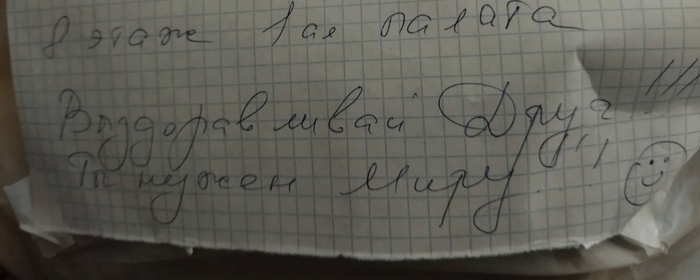 8 этаж 1 ая палата
Выздоравливай Друг!!!
Ты нужен миру...!!